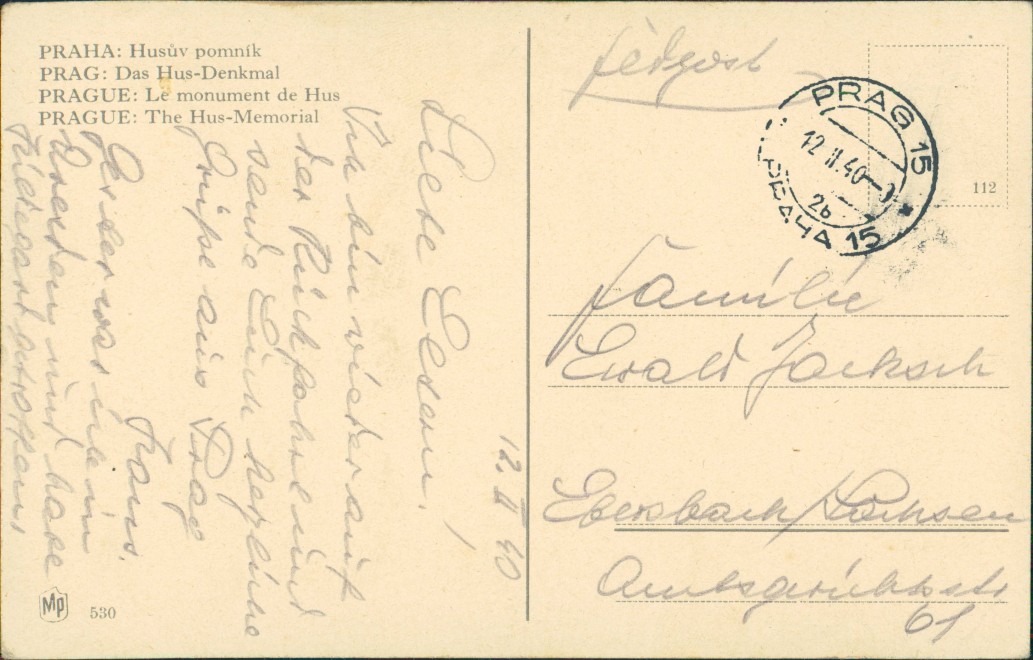 PRAHA: Husův pomník
PRAG: Das Hus-Denkmal
PRAGUE: Le monument de Hus
PRAGUE: The Hus-Memorial
12. II 40
Liebe Eltern!
Ich bin wieder auf
der Rückfahrt und
sende Euch herzliche
Grüße aus Prag
Hans.
Gestern war ich in
Dresden und habe
Hildegard getroffen
Feldpost
PRAG 15
12 II 40
2b
PRAHA 15
112
Familie
Ewald Jacksch
Ebersbach/Sachsen
Amtsgerichtsstr
61
Mp
530